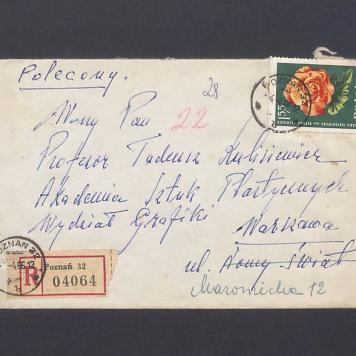 Polecony.
28
22
Wny Pan
Profesor Tadeusz Kulisiewicz
Akademia Sztuk Plastycznych
Wydział Grafiki
Warszawa
ul. Nowy Świat
Mazowiecka 12
POZNAŃ 22
R
Poznań 32
04064
155